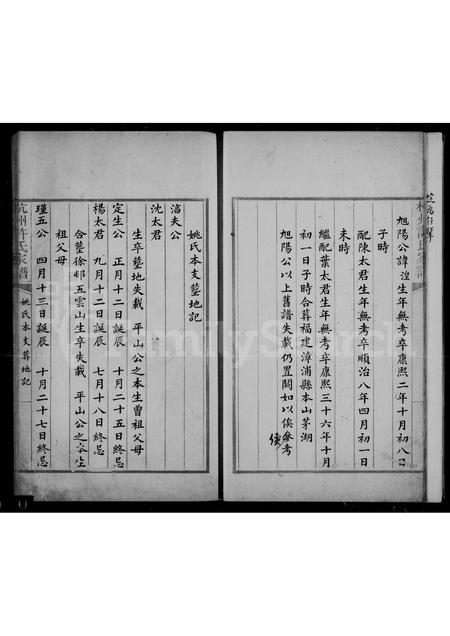 旭陽公諱湟生年無考卒康熙二年十月初八日
子時
配陳太君生年無考卒順治八年四月初一日
未時
繼配葉太君生年無考卒康熙三十六年十月
初一日子時合葬福建漳浦縣本山茅湖
旭陽公以上舊譜失載仍置闕如以俟參考
俟
姚氏本支墓地記
湇夫公
沈太君
生卒墓地失載 平山公之本生曾祖父母
定生公 正月十二日誕辰 十月二十五日終忌
楊太君 九月十二日誕辰 七月十八日終忌
合墓徐邨五雲山生卒失載 平山公之本生
祖父母
瑾五公 四月十三日誕辰 十月二十七日終忌
杭州許氏家譜 姚氏本支墓地記
FamilySearch